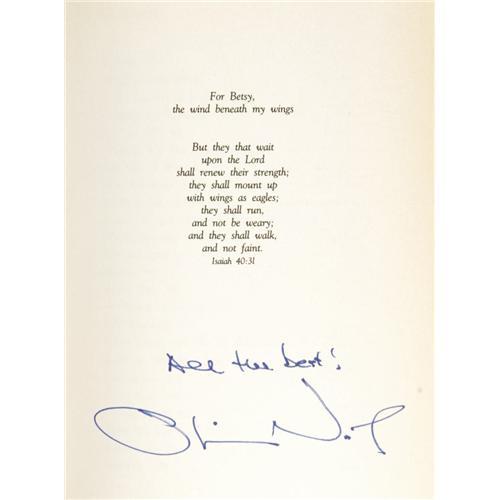 For Betsy,
the wind beneath my wings
But they that wait
upon the Lord
shall renew their strength;
they shall mount up
with wings as eagles;
they shall run,
and not be weary;
and they shall walk,
and not faint.
Isaiah 40:31
All the best!